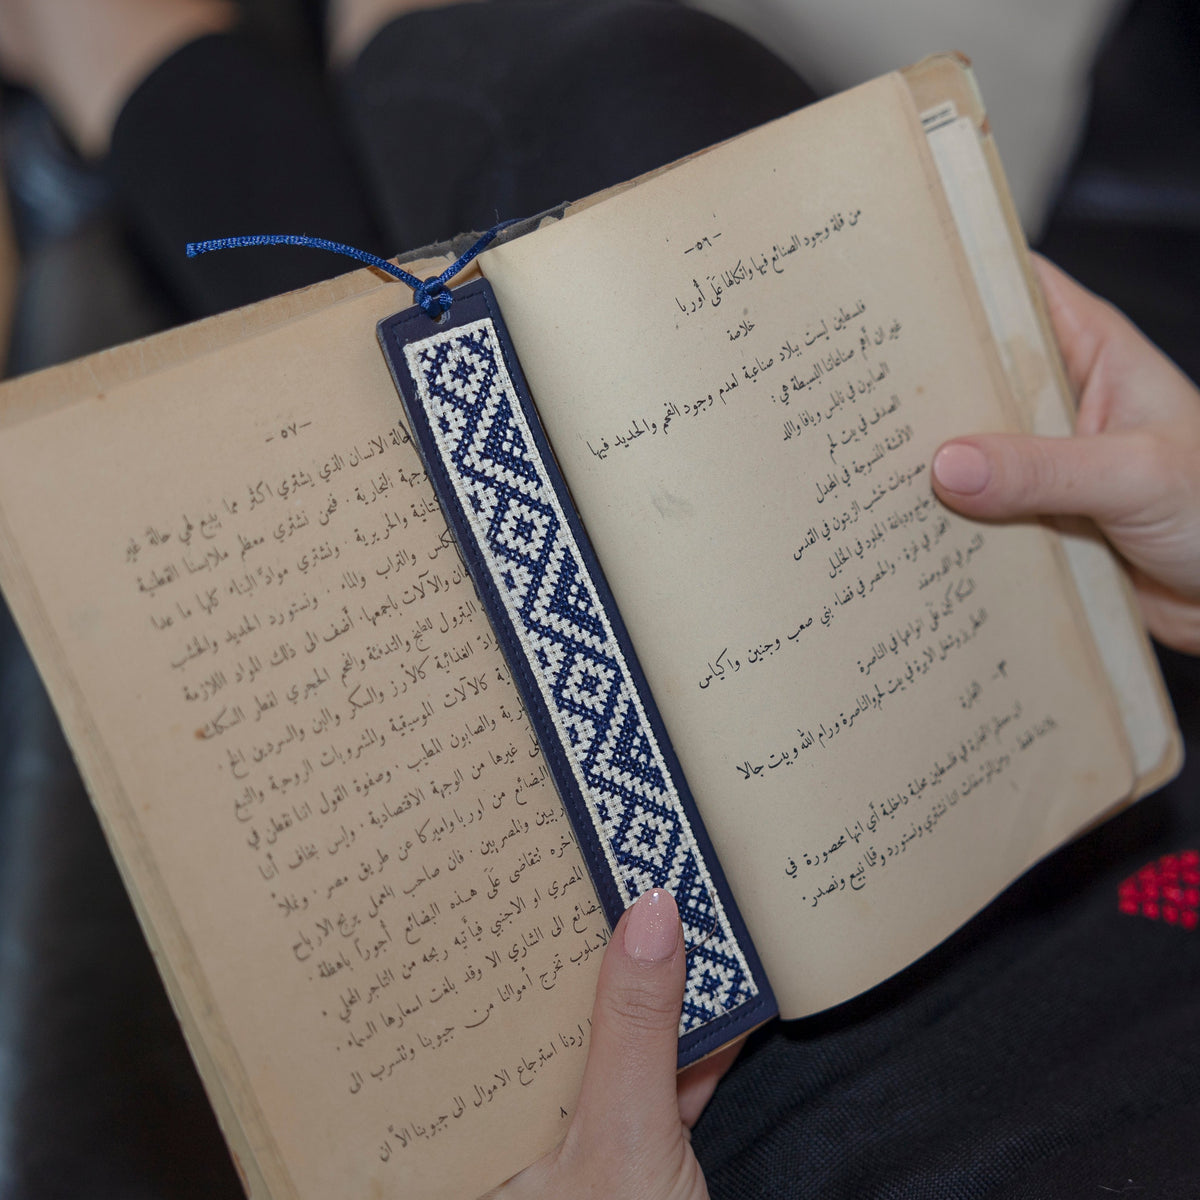 -٥٦-
من قلة وجود الصنائع فيها واتكالها عَلَى أوربا
خلاصة
فلسطين ليست ببلاد صناعية لعدم وجود الفحم والحديد فيها
غير ان أهم صناعاتنا البسيطة هي :
الصابون في نابلس ويافا واللد
الصدف في بيت لحم
الأقمشة المنسوجة في المجدل
مصنوعات خشب الزيتون في القدس
الزجاج ودباغة الجلود في الخليل
الفخار في غزة . والحصر في قضاء بني صعب وجنين
السكاكين عَلَى انواعها في الناصرة
التطريز وشغل الابرة في بيت لحم والناصرة ورام الله وبيت جالا
٣- التجارة
ان معظم التجارة في فلسطين محلية داخلية أي انها محصورة في
اننا نشتري ونستورد وقلما نبيع ونصدر .
-٥٧-
حالة الانسان الذي يشتري اكثر مما يبيع لهي حالة غير
التجارية . فنحن نشتري معظم ملابسنا القطنية
والحريرية . ونشتري موادّ البناء كلها ما عدا
والتراب والماء . ونستورد الحديد والخشب
والآلات باجمعها. أضف الى ذلك المواد اللازمة
البترول للطبخ والتدفئة والفحم الحجري لقطر السكك
الغذائية كالأرز والسكر والبن والسردين الخ
كالآلات الموسيقية والمشروبات الروحية والتبغ
والصابون المطيب . وصفوة القول اننا نقطن في
غيرها من الوجهة الاقتصادية . وليس بخاف أننا
البضائع من اوربا واميركا عن طريق مصر . وفلاً
والمصريين . فان صاحب المعمل يربح الارباح
تتقاضى عَلَى هذه البضائع أجوراً باهظة .
المصري او الاجنبي فيأتيه ربحه من التاجر المحلي .
الى الشاري الا وقد بلغت اسعارها السماء .
الاسلوب تخرج أموالنا من جيوبنا وتتسرب الى
اردنا استرجاع الاموال الى جيوبنا الا ان
٨